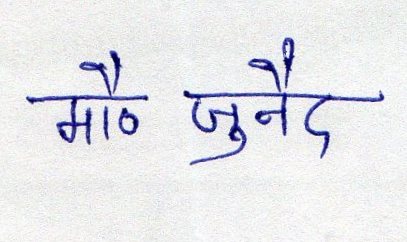 मौ० जुनैद